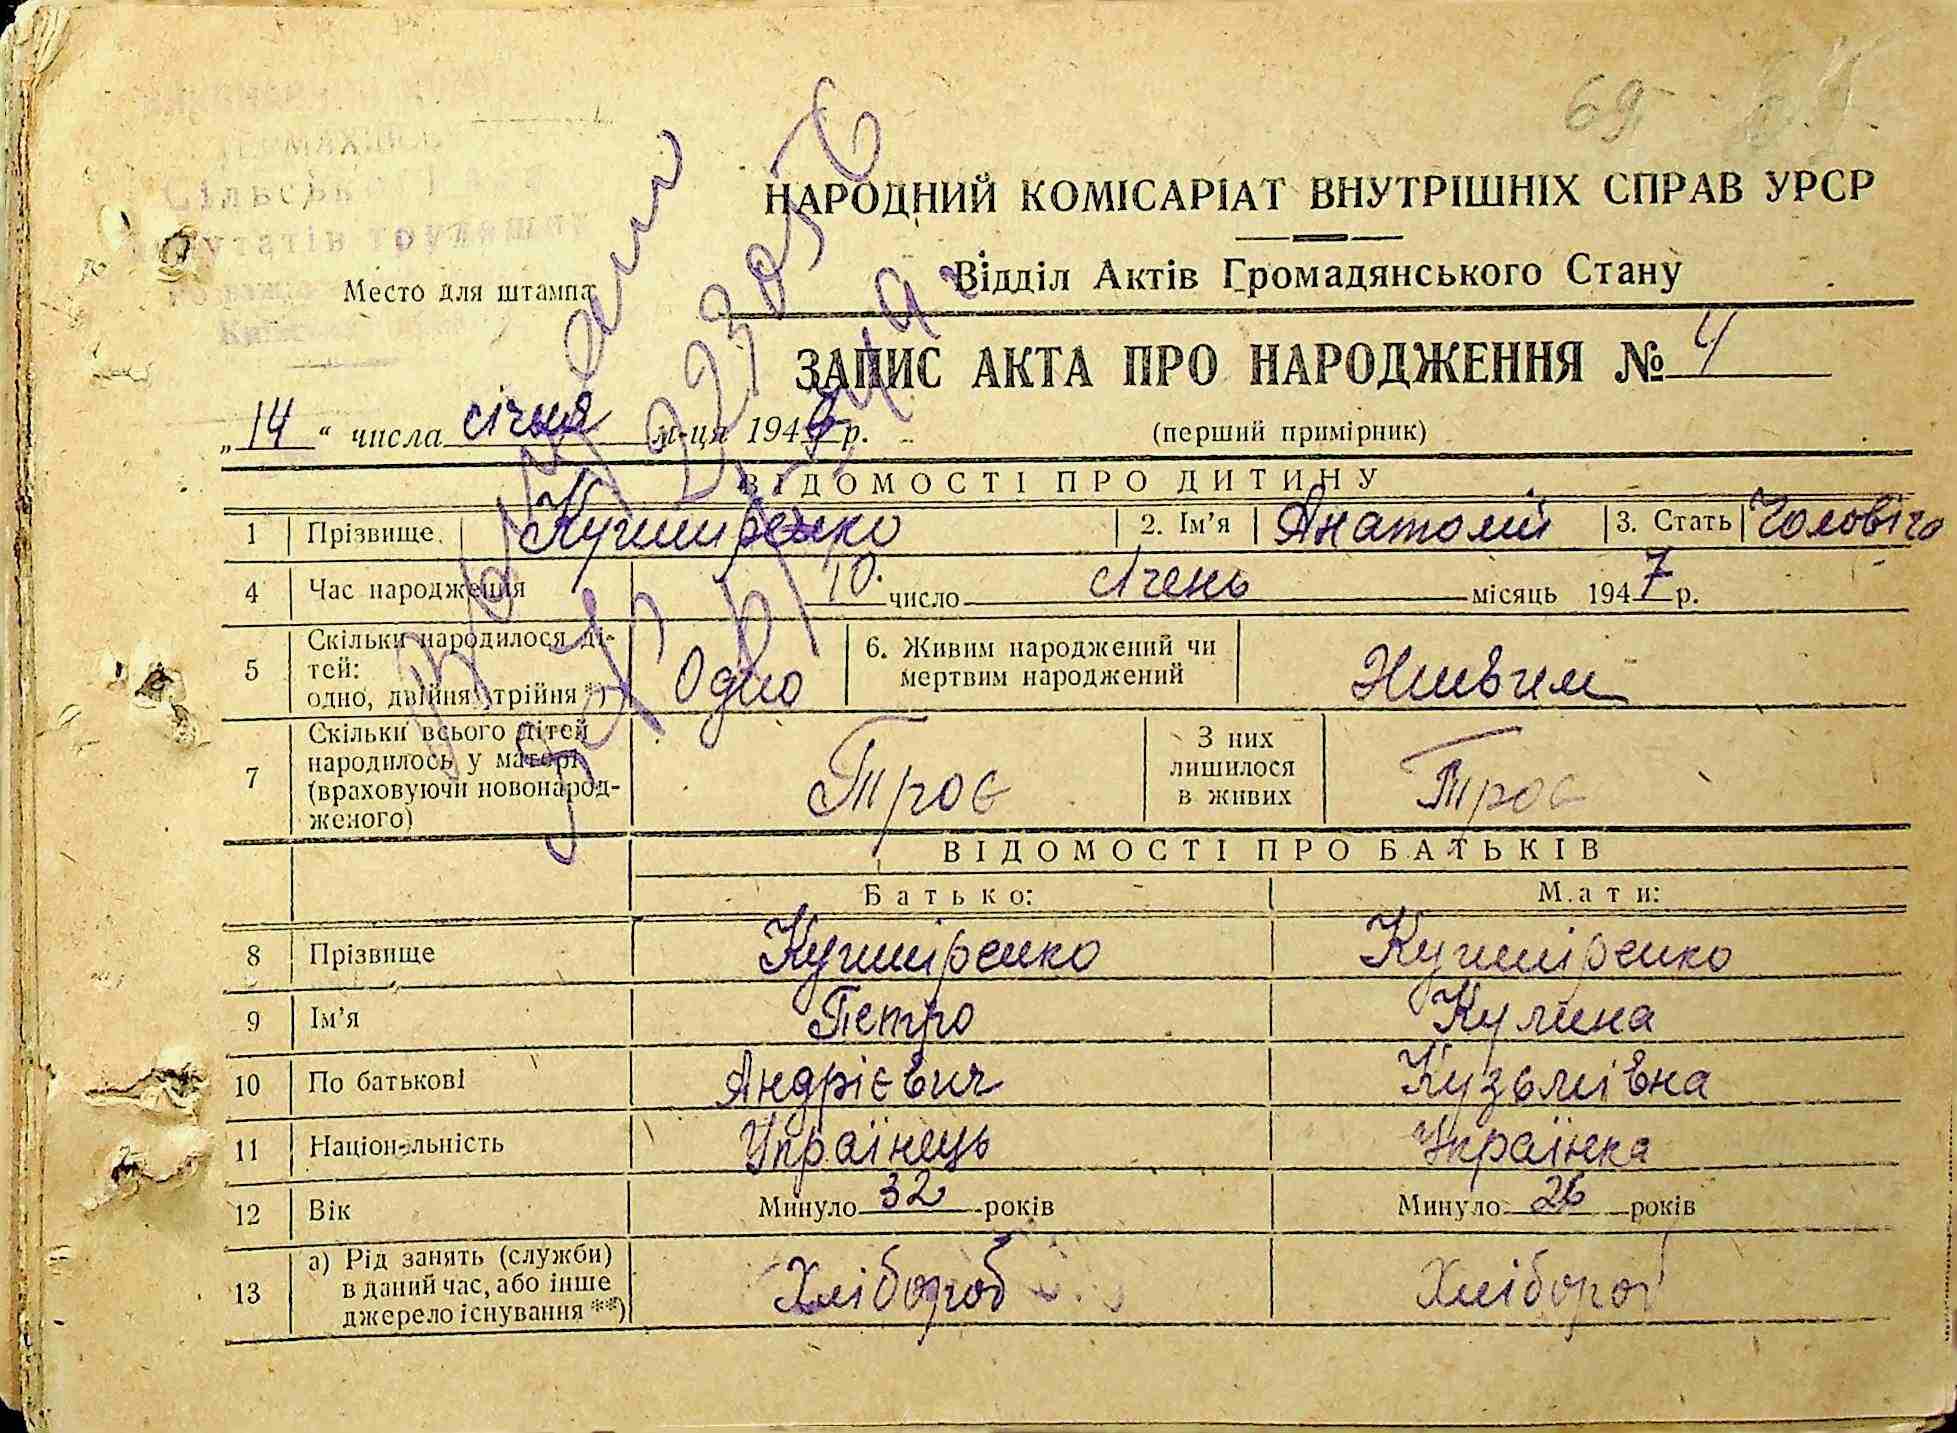 69
НАРОДНИЙ КОМІСАРІАТ ВНУТРІШНІХ СПРАВ УРСР
Відділ Актів Громадянського Стану
Место для штампа
ЗАПИС АКТА ПРО НАРОДЖЕННЯ № 4
„14“ числа січня м-ця 194 р. (перший примірник)
ВІДОМОСТІ ПРО ДИТИНУ
1 Прізвище Кушніренко 2. Ім'я Анатолій 3. Стать Чоловіча
4 Час народження 10 число січень місяць 1947 р.
5 Скільки народилося ді-
тей:
одно, двійня, трійня *) Одно 6. Живим народжений чи
мертвим народжений Живим
7 Скільки всього дітей
народилось у матері
(враховуючи новонарод-
женого) Троє З них
лишилося
в живих Троє
ВІДОМОСТІ ПРО БАТЬКІВ
Батько: Мати:
8 Прізвище Кушніренко Кушніренко
9 Ім'я Петро Кулина
10 По батькові Андрієвич Кузьмівна
11 Національність Українець Українка
12 Вік Минуло 32 років Минуло 26 років
13 а) Рід занять (служби)
в даний час, або інше
джерело існування **) Хлібороб Хлібороб